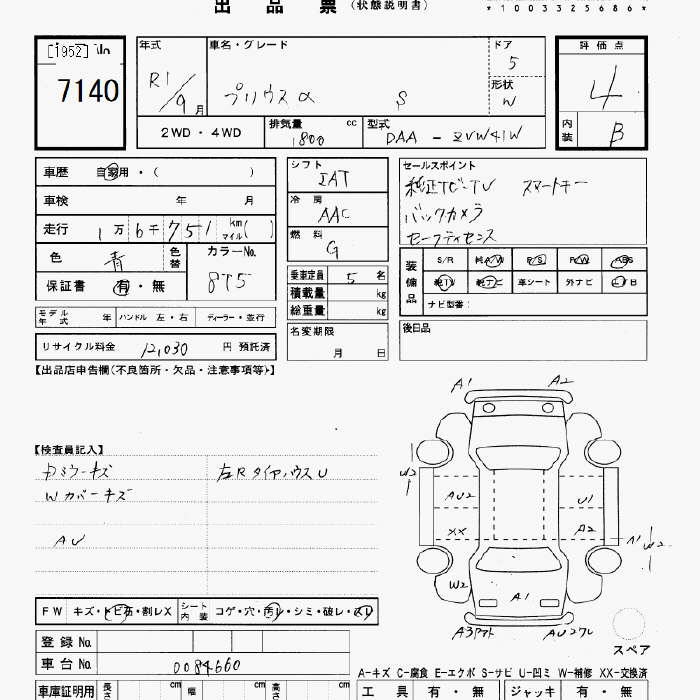 出品票 (状態説明書)
*1003325686*
[1952] No
7140
年式 R1/9月
車名・グレード プリウスα S
ドア 5
形状 W
評価点 4
内装 B
2WD・4WD
排気量 1800 cc
型式 DAA-ZVW41W
車歴 自家用・( )
車検 年 月
走行 1万6千751 km マイル( )
色 青 色替
カラーNo. 8T5
保証書 有・無
モデル年式 年 ハンドル 左・右 ディーラー・並行
リサイクル料金 12,030 円 預託済
シフト IAT
冷房 AAC
燃料 G
乗車定員 5 名
積載量 kg
総重量 kg
名変期限 月 日
セールスポイント
純正ナビ・TV スマートキー
バックカメラ
セーフティセンス
装備品 S/R 純A/W P/S P/W ABS
純TV 純ナビ 革シート 外ナビ エアB
ナビ型番:
後日品
【出品店申告欄(不良箇所・欠品・注意事項等)】
【検査員記入】
Rミラーキズ 左Rタイヤハウス U
Wカバーキズ
AU
A1 A2
W2 AU2 U1
XX A2 A1 W2
W2 A1
A3アト AU2クレ
スペア
FW キズ・トビ石・割レX シート内装 コゲ・穴・汚レ・シミ・破レ・スレ
登録No.
車台No. 0084660
A-キズ C-腐食 E-エクボ S-サビ U-凹ミ W-補修 XX-交換済
車庫証明用 長さ cm 幅 cm 高さ cm
工具 有・無 ジャッキ 有・無